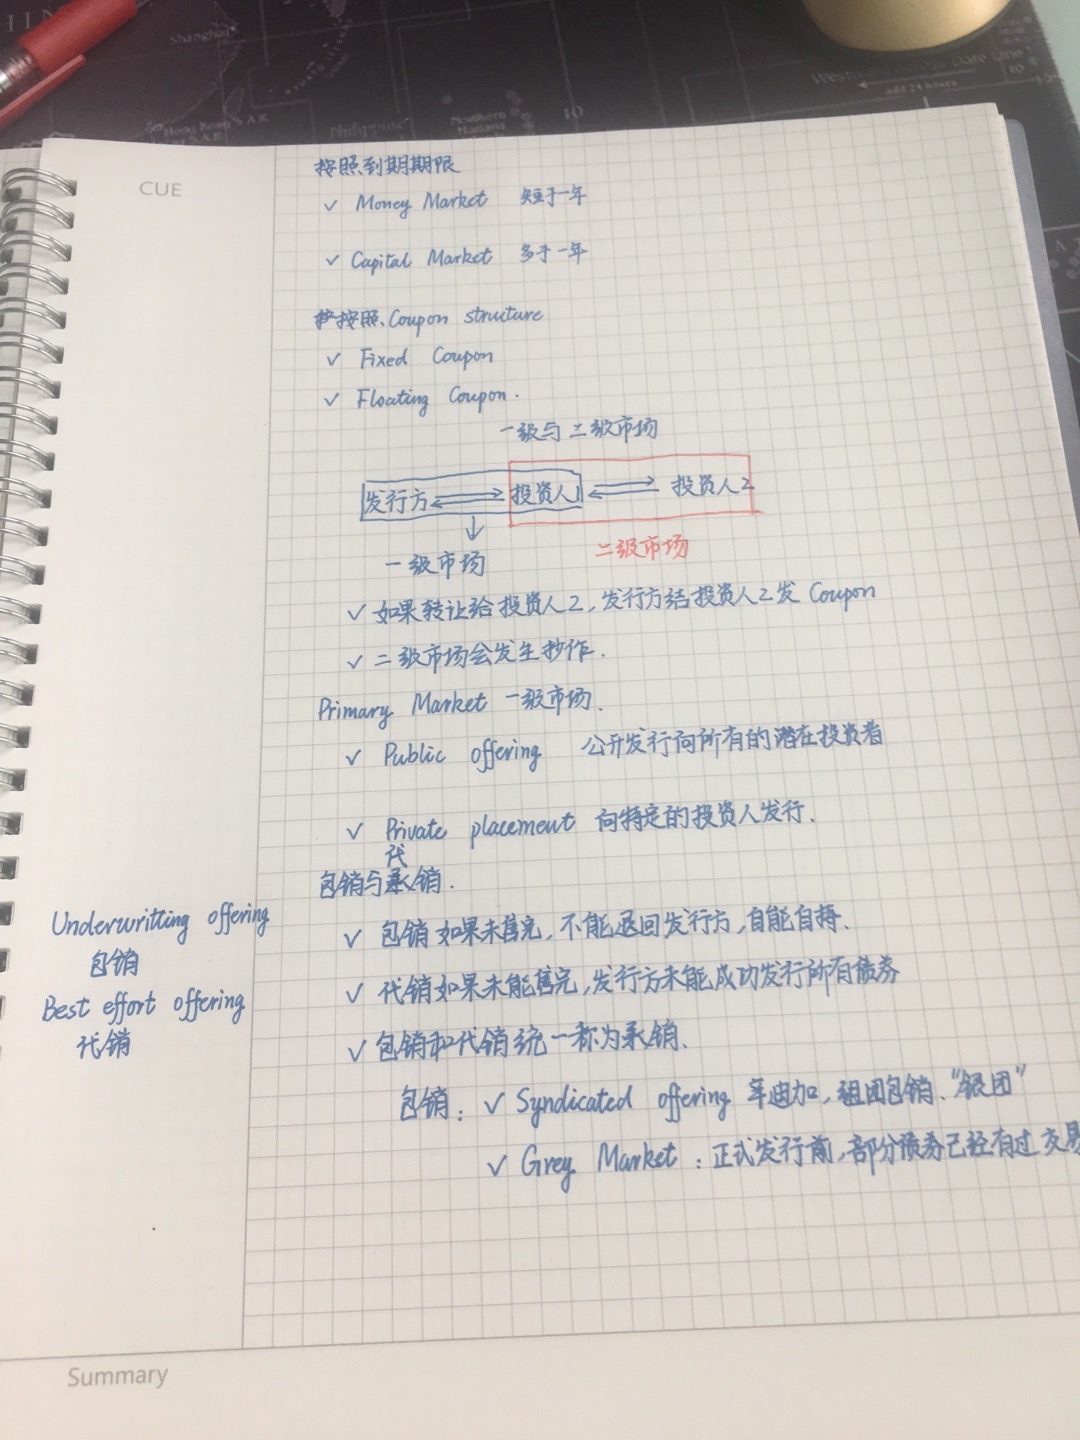 Shanghai
Hong Kong
Philippine
Northern
Mariana
add 24 hours
CUE
按照到期期限
✓ Money Market 短于一年
✓ Capital Market 多于一年
按照 Coupon structure
✓ Fixed Coupon
✓ Floating Coupon.
一级与二级市场
发行方 投资人1 投资人2
一级市场
二级市场
✓ 如果转让给投资人2,发行方结投资人2发 Coupon
✓ 二级市场会发生抄作.
Primary Market 一级市场.
✓ Public offering 公开发行向所有的潜在投资者
✓ Private placement 向特定的投资人发行.
代
包销与承销.
Underwritting offering
包销
✓ 包销如果未售完,不能退回发行方,自能自持.
Best effort offering
代销
✓ 代销如果未能售完,发行方未能成功发行所有债券
✓ 包销和代销统一称为承销.
包销: ✓ Syndicated offering 辛迪加,组团包销."银团"
✓ Grey Market: 正式发行前,部分债券已经有过交易
Summary